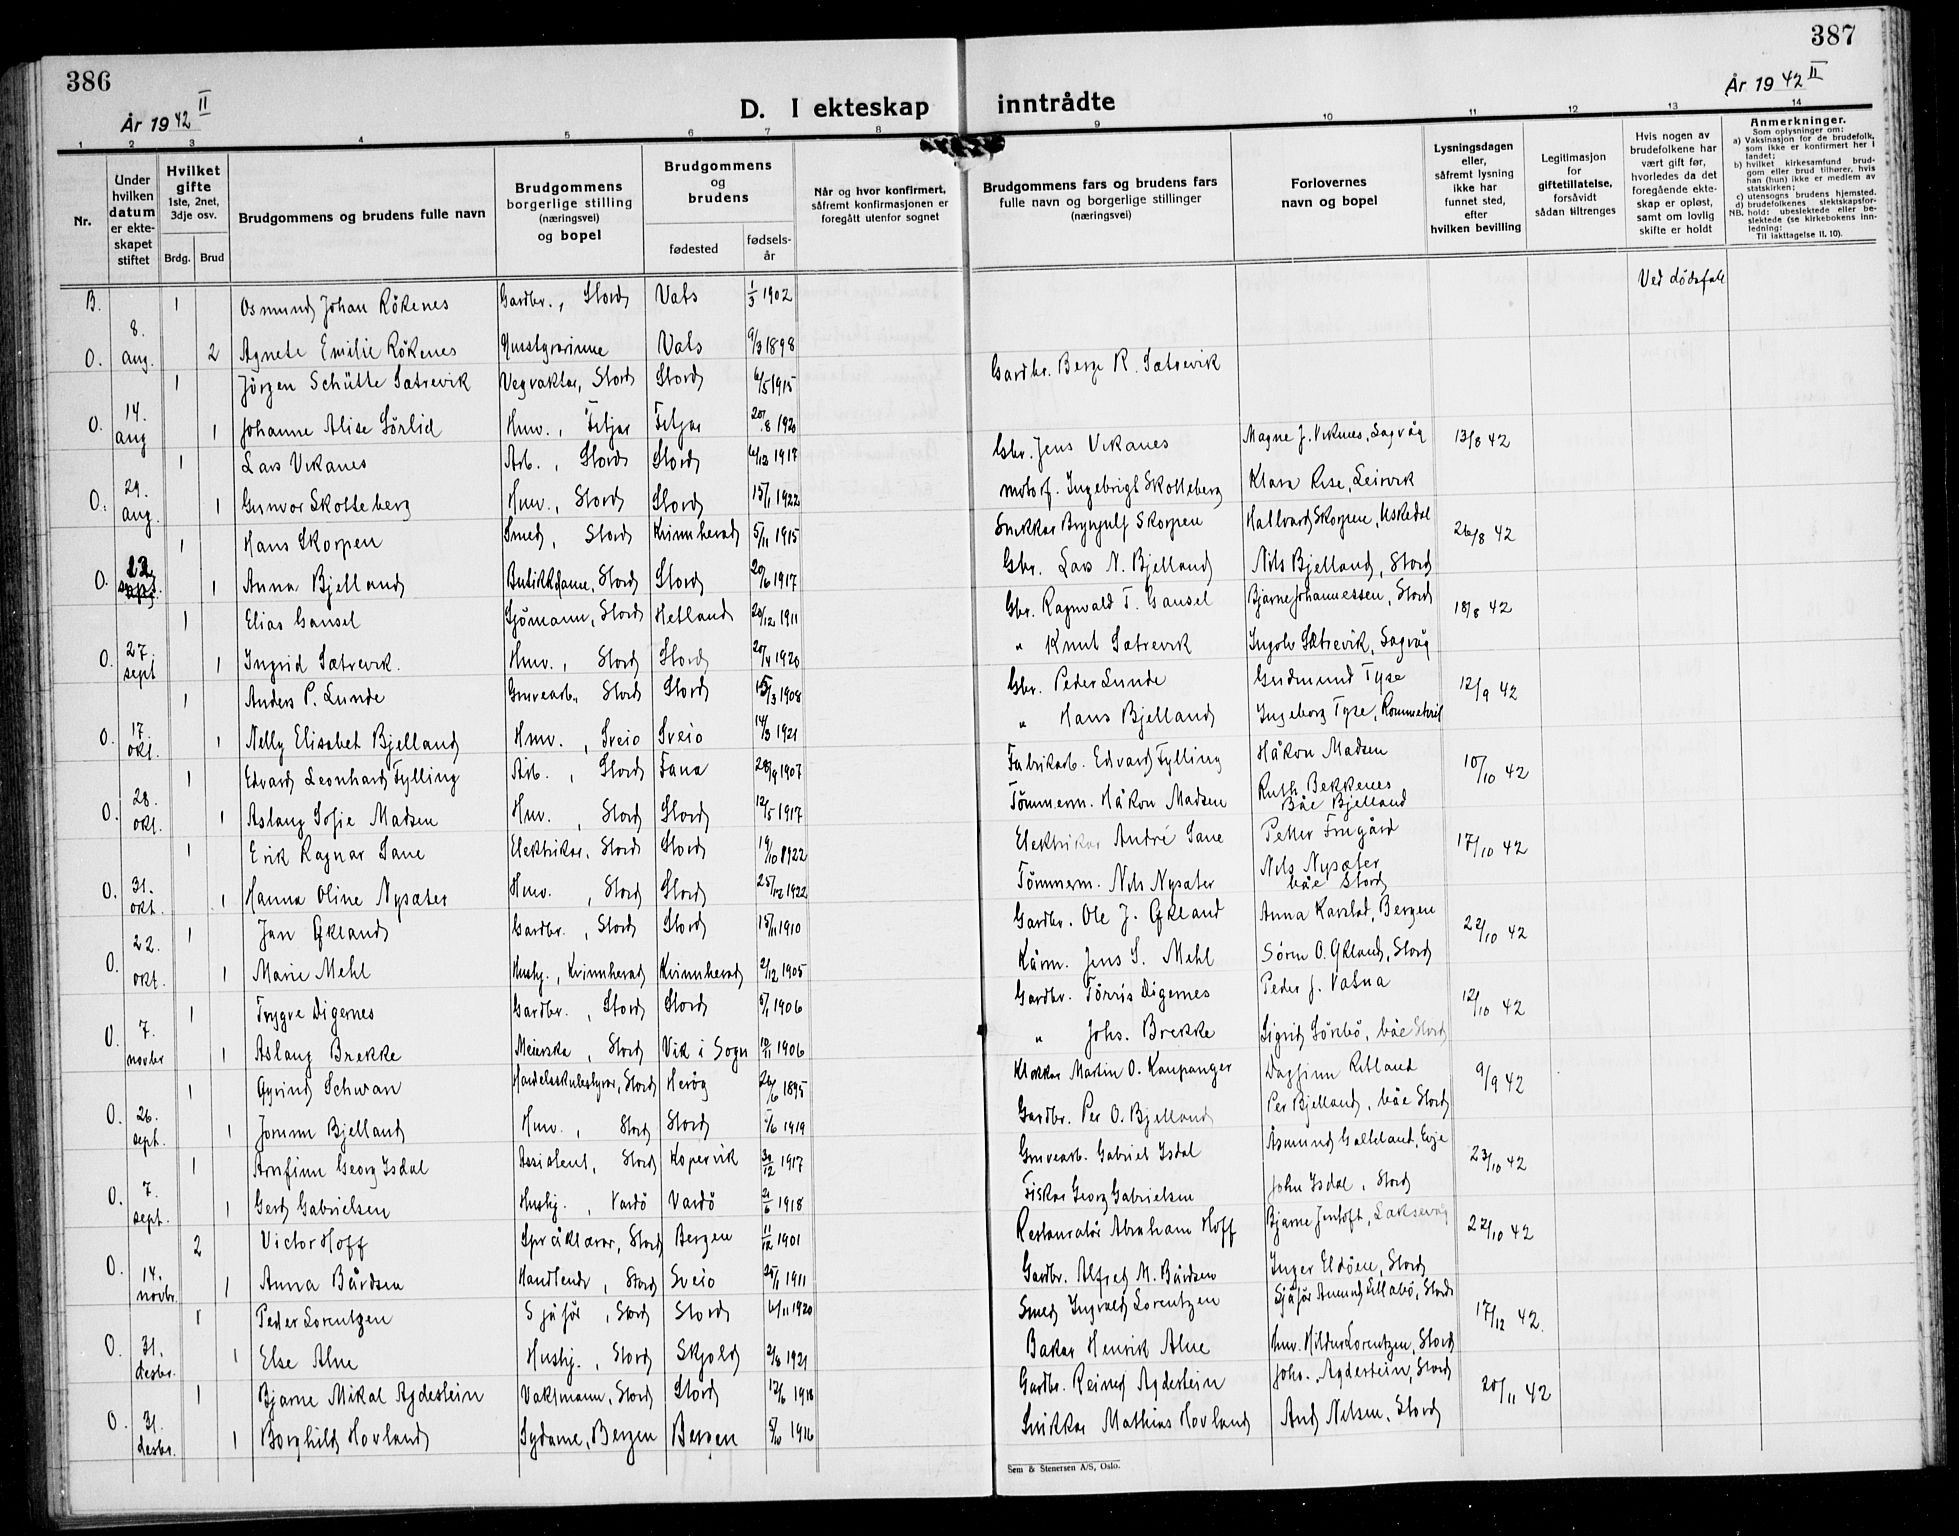 386
År 1942 II
D. I ekteskap
1
2
3
4
5
6
7
8
Nr.
Under hvilken datum er ekteskapet stiftet
Hvilket gifte
1ste, 2net, 3dje osv.
Brdg. Brud
Brudgommens og brudens fulle navn
Brudgommens borgerlige stilling (næringsvei) og bopel
Brudgommens og brudens
fødested
fødselsår
Når og hvor konfirmert, såfremt konfirmasjonen er foregått utenfor sognet
B. 1 Osmund Johan Rökenes Gardbr., Stord Vats 1/3 1902
O. 8. aug. 2 Agnete Emilie Rökenes Vats 9/3 1898
1 Jørgen Schütte Sætrevik Vegvaktar, Stord Stord 6/5 1915
O. 14. aug 1 Johanne Alise Sörlid Hmv., Fitjar Fitjar 20/8 1920
1 Lars Vikanes Arb., Stord Stord
O. 29. aug. 1 Gunvor Skotteberg Hmv., Stord Stord 15/1 1922
1 Hans Skorpen Smed, Stord Kvinnherad 5/11 1915
O. sept. 1 Anna Bjelland Butikkdame, Stord Stord 20/6 1917
1 Elias Gansel Sjömann, Stord Hetland 20/12 1911
O. 27. sept 1 Ingrid Sætrevik. Hmv., Stord Stord 20/4 1920
1 Anders P. Lunde Gruvearb., Stord Stord 1908
O. 17. okt. 1 Nelly Elisabet Bjelland Hmv., Sveio Sveio 14/3 1921
1 Edvard Leonhard Fylling Arb., Stord Fana 28/9 1907
O. 28. okt. 1 Aslaug Sofie Madsen Hmv., Stord Stord 12/5 1917
1 Erik Ragnar Sane Elektrikar, Stord Stord 19/10 1922
O. 31. okt. 1 Hanna Oline Nysæter Hmv., Stord Stord 25/12 1922
1 Jan Økland Gardbr., Stord Stord 15/11 1910
O. 22. okt. 1 Marie Mehl Hushj., Kvinnherad Kvinnherad 2/12 1905
1 Trygve Digernes Gardbr., Stord Stord 5/1 1906
O. 7. novbr 1 Aslaug Brekke Meierske, Stord Vik i Sogn 10/11 1906
1 Øyvind Schwan Handelsskulestyrar, Stord Herög 26/6 1895
O. 26. sept. 1 Jorunn Bjelland Hmv., Stord Stord 1919
1 Arnfinn Georg Isdal Assistent, Stord Kopervik 30/12 1917
O. 7. sept. 1 Gerd Gabrielsen Hushj., Vardö Vardö 21/6 1918
2 Victor Hoff Språklærar, Stord Bergen 11/12 1901
O. 14. novbr. 1 Anna Bårdsen Stord Sveio 25/1 1911
1 Peder Lorentzen Sjåfør, Stord Stord 6/11 1920
O. 31. desbr. 1 Else Alne Hushj., Stord Skjold 2/8 1921
1 Bjarne Mikal Agdestein Vaktmann, Stord Stord 12/6 1918
O. 31. desbr. 1 Borghild Hovland Sydame, Bergen Bergen 5/10 1916
387
År 1942 II
inntrådte
9
10
11
12
13
14
Brudgommens fars og brudens fars fulle navn og borgerlige stillinger (næringsvei)
Forlovernes navn og bopel
Lysningsdagen eller, såfremt lysning ikke har funnet sted, efter hvilken bevilling
Legitimasjon for giftetillatelse, forsåvidt sådan tiltrenges
Hvis nogen av brudefolkene har vært gift før, hvorledes da det foregående ekteskap er opløst, samt om lovlig skifte er holdt
Anmerkninger.
Som oplysninger om:
a) Vaksinasjon for de brudefolk, som ikke er konfirmert her i landet;
b) hvilket kirkesamfund brudgom eller brud tilhører, hvis han (hun) ikke er medlem av statskirken;
c) utensogns brudens hjemsted.
d) brudefolkenes slektskapsforhold: ubeslektede eller beslektede (se kirkebokens innledning:
NB. Til iakttagelse II. 10).
Ved dödsfall
Gardbr. Berge R. Sætrevik
Gbr. Jens Vikanes Magne J. Viknes, Sagvåg 13/8 42
motorf. Ingebrigt Skotteberg Klara Rise, Leirvik
Snikkar Brynjulf Skorpen Hallvard Skorpen, Uskedal 26/8 42
Gbr. Lars N. Bjelland Nils Bjelland, Stord
Gbr. Ragnvald T. Gansel Bjarne Johannessen, Stord 18/8 42
" Knut Sætrevik Ingolv Sætrevik, Sagvåg
Gbr. Peder Lunde Gudmund Tyse 12/9 42
" Hans Bjelland Ingeborg Tyse, Rommetveit
Fabrikarb. Edvard Fylling Håkon Madsen 10/10 42
Tömmerm. Håkon Madsen Ruth Bekkenes Båe Bjelland
Elektrikar André Sane Petter Frugård 17/10 42
Tömmerm. Nils Nysæter Nils Nysæter båe Stord
Gardbr. Ole J. Økland Anna Karstad, Bergen 22/10 42
Jens S. Mehl Sören O. Økland, Stord
Gardbr. Törris Digernes Peder J. Valna 12/10 42
" Johs. Brekke Sigrid Sörebö, båe Stord
Klokkar Martin O. Kaupanger Dagfinn Ritland 9/9 42
Gardbr. Per O. Bjelland Per Bjelland, båe Stord
Gruvearb. Gabriel Isdal Åsmund Galteland, Evje 23/10 42
Fiskar Georg Gabrielsen John Isdal, Stord
Restauratör Abraham Hoff Bjarne Jentoft, Laksevåg 22/10 42
Gardbr. Alfred M. Bårdsen Inger Eldöen, Stord
Smed Ingvald Lorentzen Sjåför Amund Lillebö, Stord 17/12 42.
Bakar Henrik Alne hmv. Hildur Lorentzen, Stord
Gardbr. Reined Agdestein Johs. Agdestein, Stord 20/11 42
Snikkar Mathias Hovland And. Nilsen, Stord
Sem & Stenersen A/S, Oslo.